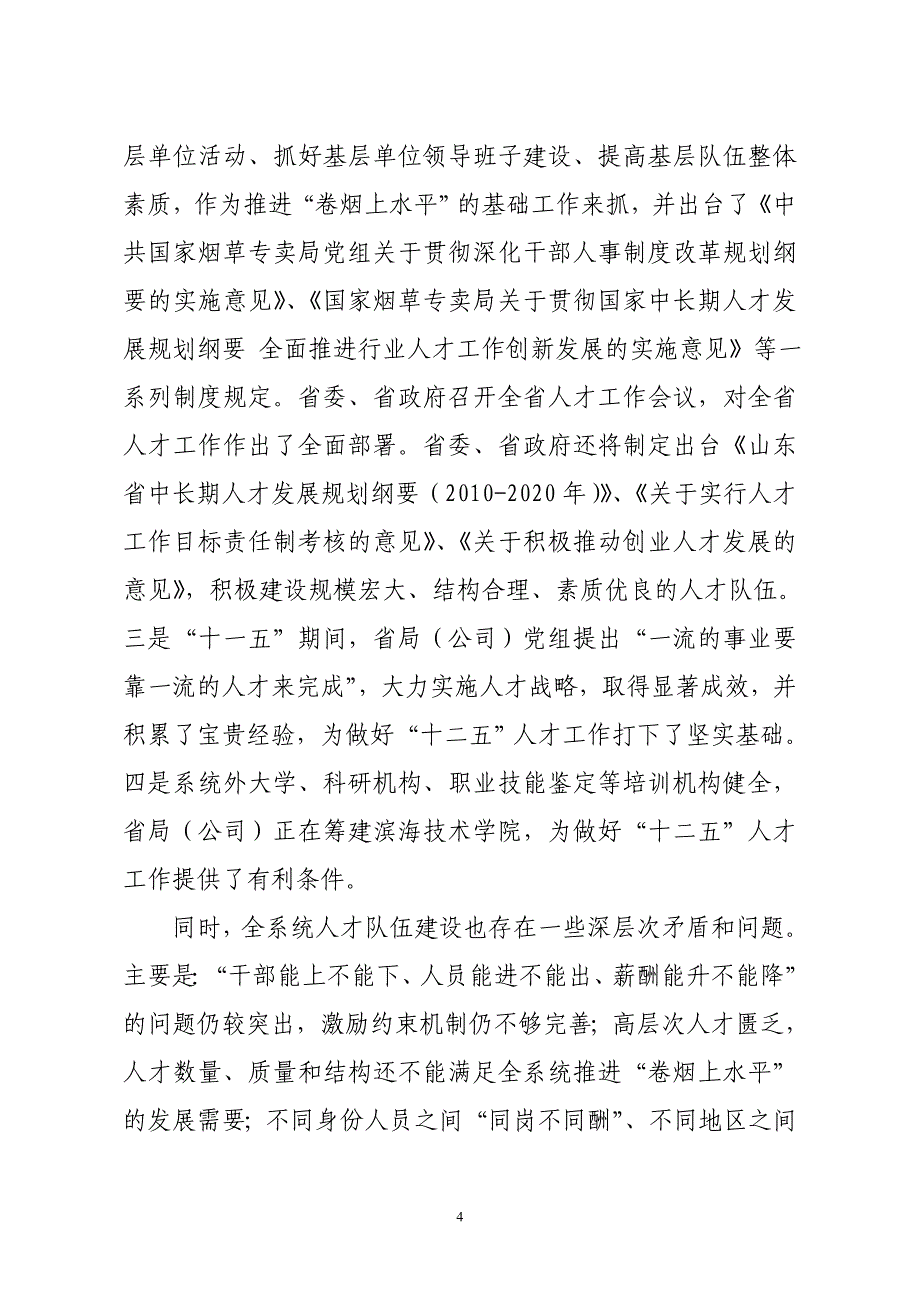 层单位活动、抓好基层单位领导班子建设、提高基层队伍整体
素质，作为推进“卷烟上水平”的基础工作来抓，并出台了《中
共国家烟草专卖局党组关于贯彻深化干部人事制度改革规划纲
要的实施意见》、《国家烟草专卖局关于贯彻国家中长期人才发
展规划纲要 全面推进行业人才工作创新发展的实施意见》等一
系列制度规定。省委、省政府召开全省人才工作会议，对全省
人才工作作出了全面部署。省委、省政府还将制定出台《山东
省中长期人才发展规划纲要（2010-2020年）》、《关于实行人才
工作目标责任制考核的意见》、《关于积极推动创业人才发展的
意见》，积极建设规模宏大、结构合理、素质优良的人才队伍。
三是“十一五”期间，省局（公司）党组提出“一流的事业要
靠一流的人才来完成”，大力实施人才战略，取得显著成效，并
积累了宝贵经验，为做好“十二五”人才工作打下了坚实基础。
四是系统外大学、科研机构、职业技能鉴定等培训机构健全，
省局（公司）正在筹建滨海技术学院，为做好“十二五”人才
工作提供了有利条件。
同时，全系统人才队伍建设也存在一些深层次矛盾和问题。
主要是：“干部能上不能下、人员能进不能出、薪酬能升不能降”
的问题仍较突出，激励约束机制仍不够完善；高层次人才匮乏，
人才数量、质量和结构还不能满足全系统推进“卷烟上水平”
的发展需要；不同身份人员之间“同岗不同酬”、不同地区之间
4